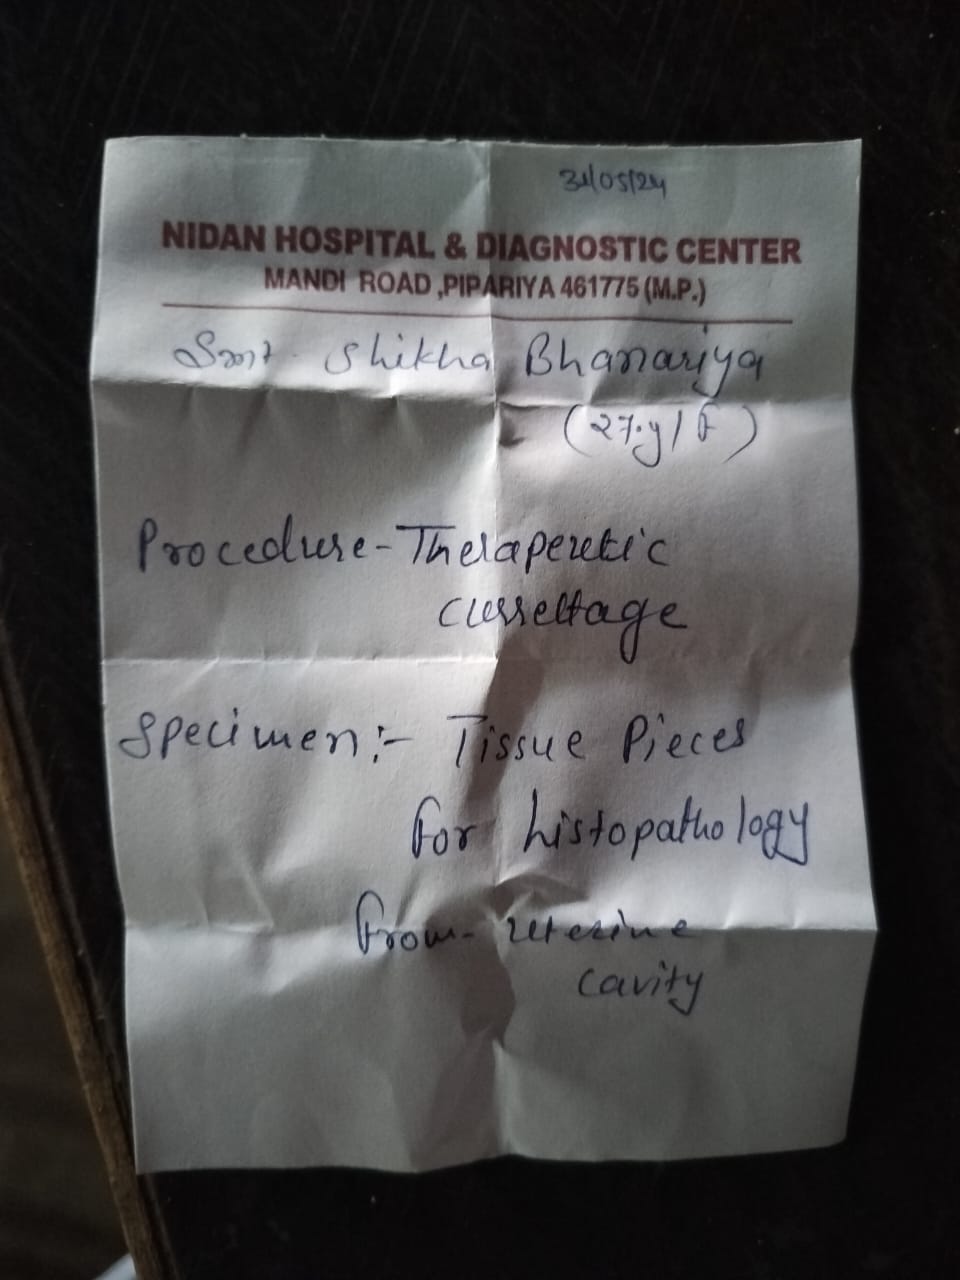 31/05/24
NIDAN HOSPITAL & DIAGNOSTIC CENTER
MANDI ROAD ,PIPARIYA 461775 (M.P.)
Smt. Shikha Bhanariya
(27.y/F)
Procedure - Therapeutic
curettage
Specimen :- Tissue Pieces
for histopathology
from - uterine
cavity